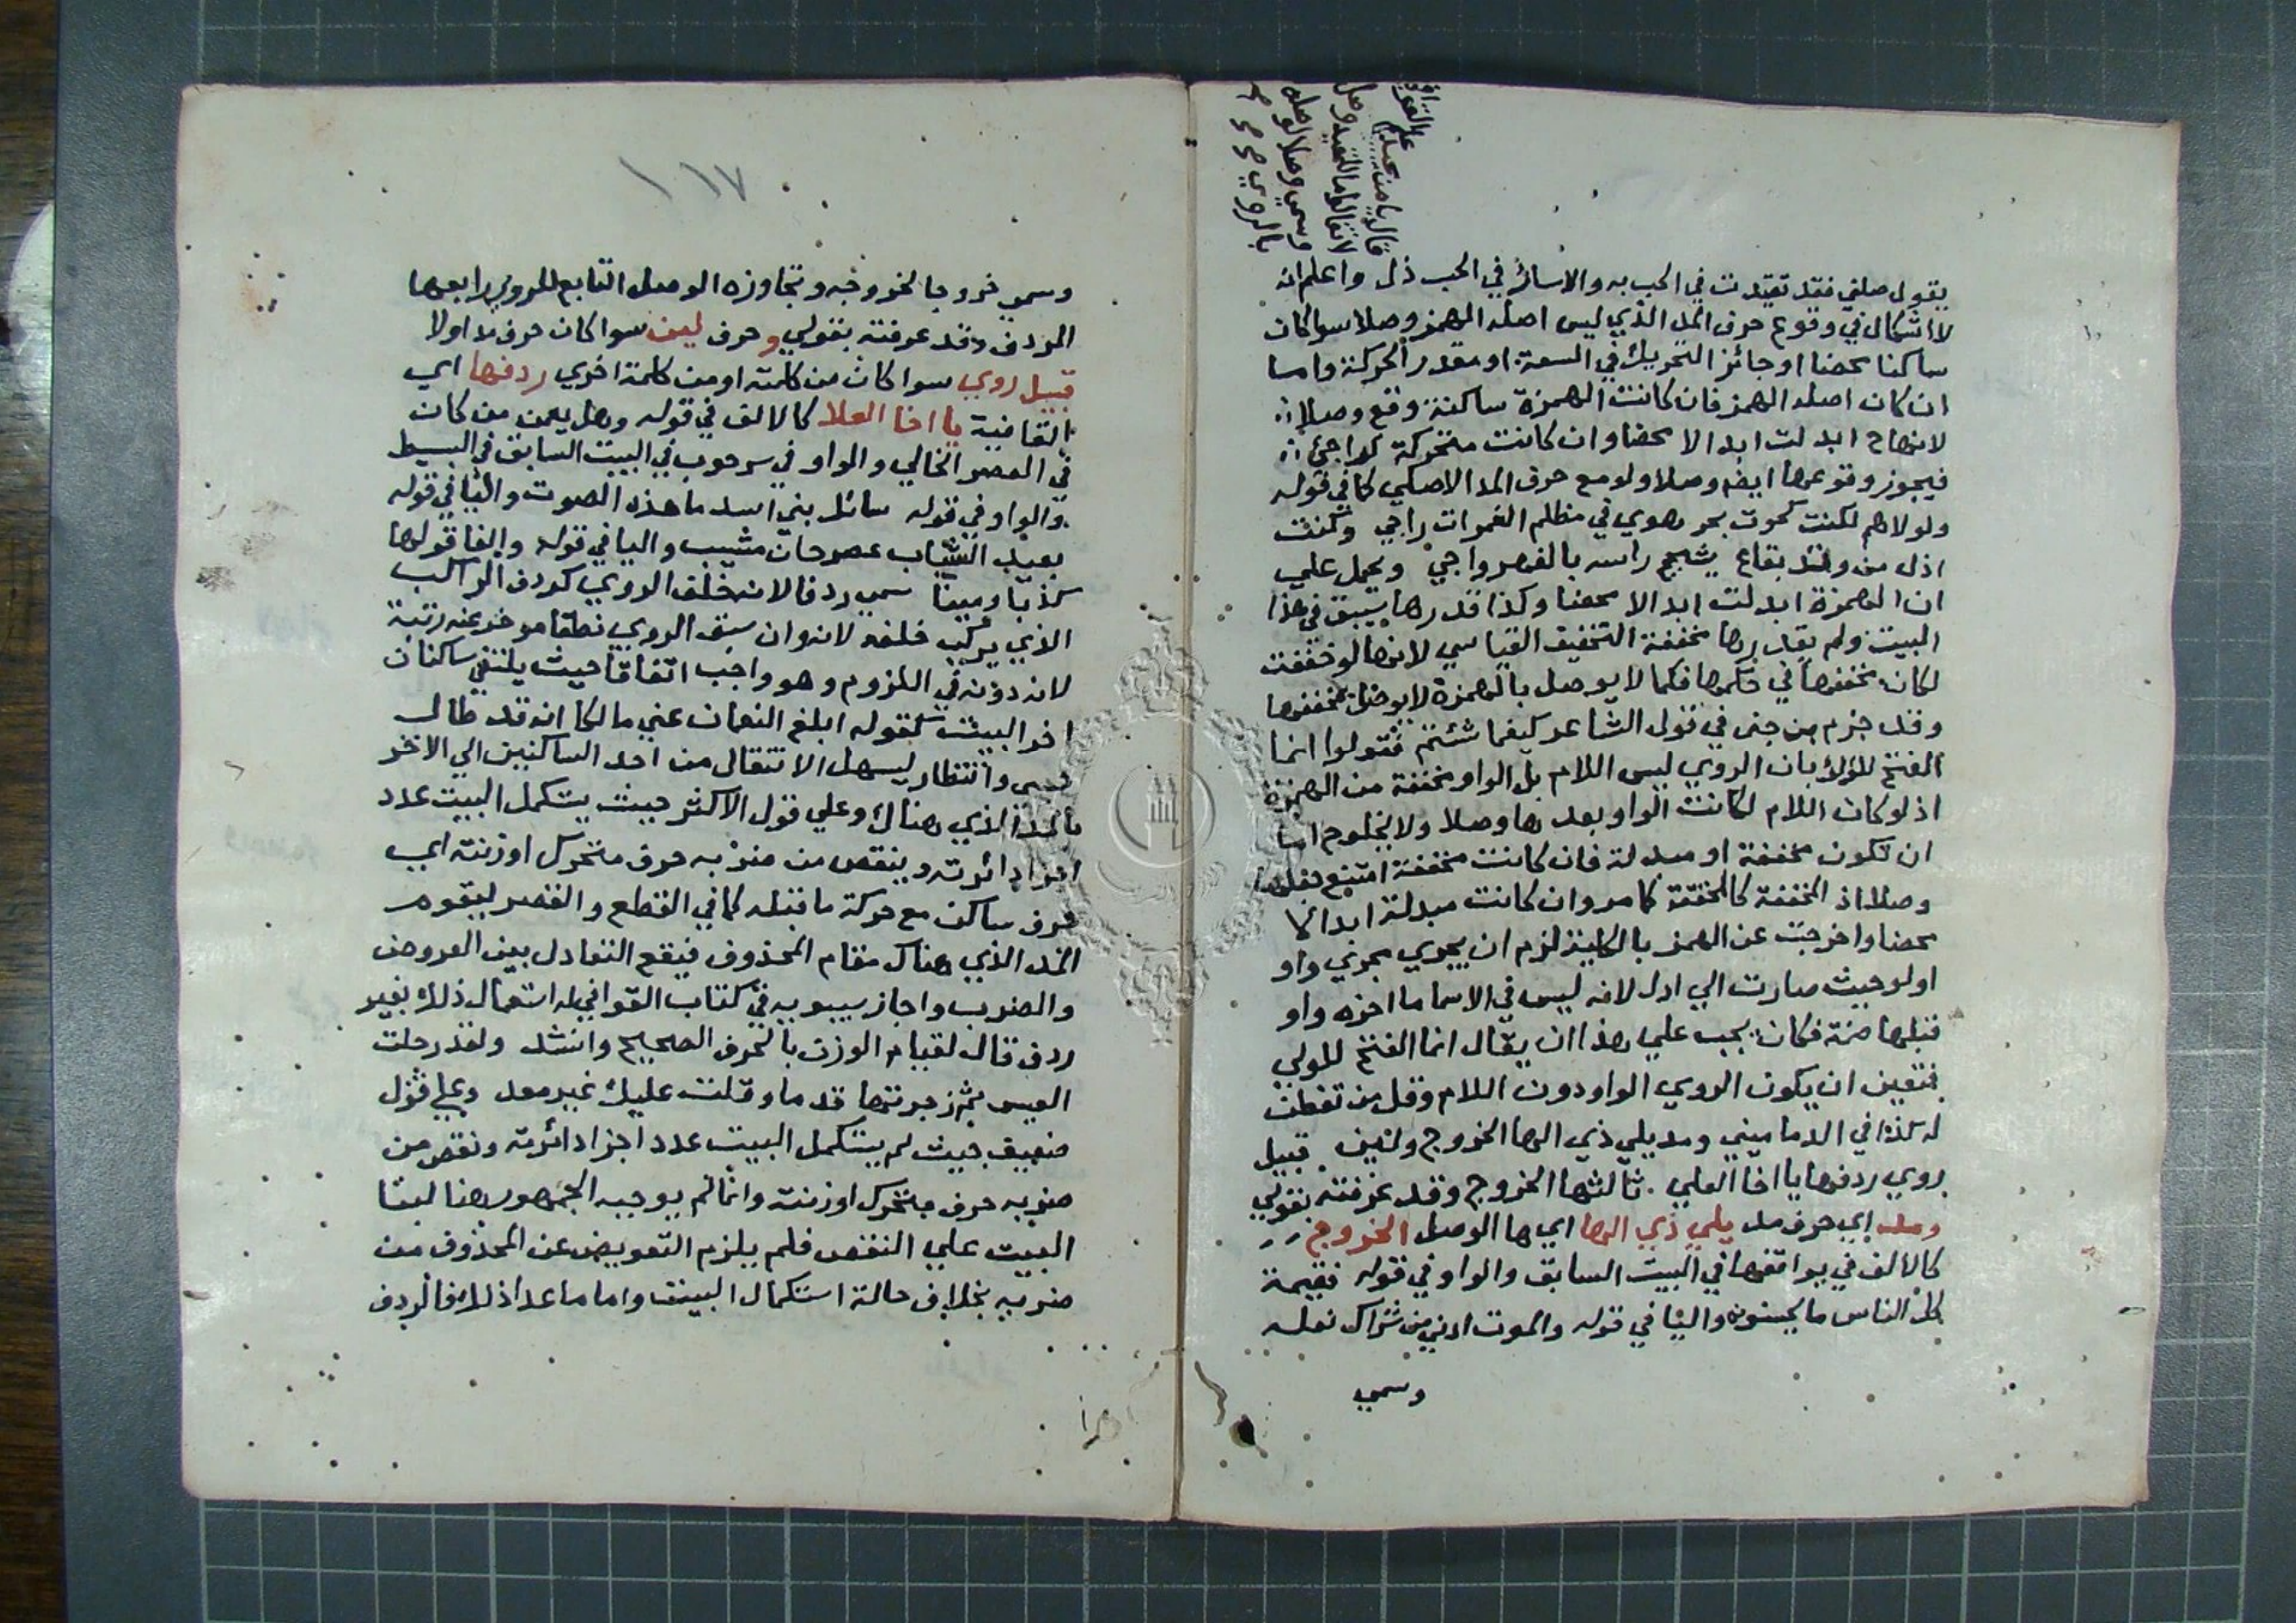 يقول صلني فقد تقيدت في الحب به والاسائر في الحب ذل واعلم انه
لا اشكال في وقوع حرف المد الذي ليس اصله الهمز وصلا سوا كان
ساكنا محضا او جائز التحريك في السعة او مقدر الحركة واما
ان كان اصله الهمز فان كانت الهمزة ساكنة وقع وصلا
لانها ح ابدلت ابدالا محضا وان كانت متحركة كواجئ
فيجوز وقوعها ايضا وصلا ولو مع حرف المد الاصلي كما في قوله
ولولاهم لكنت كحوت بحر هوي في مظلم الغمرات راجي وكنت
اذل من وتد بقاع يشجج راسه بالفهر واجي ويحمل علي
ان الهمزة ابدلت ابدالا محضا وكذا قدرها في هذا
البيت ولم يقدرها مخففة التخفيف القياسي لانها لو خففت
لكان مخففها في حكمها فكما لا يوصل بالهمزة لا يوصل بمخففها
وقد جزم بن جني في قول الشاعر كيفما شئتم فقولوا انما
الفتح للؤلؤ بان الروي ليس اللام بل الواو مخففة من الهمزة
اذ لو كان اللام لكانت الواو بعدها وصلا ولا يخلوم اما
ان تكون مخففة او مبدلة فان كانت مخففة امتنع جعلها
وصلا اذ المخففة كالمحققة كما مر وان كانت مبدلة ابدالا
محضا واخرجت عن الهمز بالكلية لزم ان يجري مجري واو
اولو حيث صارت الي ادل لانه ليس في الاسما ما اخره واو
قبلها ضمة فكان يجب علي هذا ان يقال انما الفتح للولي
فتعين ان يكون الروي الواو دون اللام وقل من تفطن
له كذا في الدماميني ومد يلي ذي الها الخروج ولين قبيل
روي ردفها يا اخا العلي ثالثها الخروج وقد عرفته بقولي
ومد اي حرف مد يلي ذي الها اي ها الوصل الخروج
كالالف في يوافقها في البيت السابق والواو في قوله فقيمة
كل الناس ما يحسنونه واليا في قوله والموت ادني من شراك نعله
وسمي
وسمي خروجا لخروجه وتجاوزه الوصل التابع للروي رابعها
الردف وقد عرفته بقولي وحرف لين سوا كان حرف مد اولا
قبيل روي سوا كان من كلمته او من كلمة اخري ردفها اي
القافية يا اخا العلا كالالف في قوله وهل يعمن من كان
في العصر الخالي والواو في سرحوب في البيت السابق في البسيط
والواو في قوله سائل بني اسد ما هذه الصوت واليا في قوله
بعيد الشباب عصر حان مشيب واليا في قوله والفا قولها
كذبا ومينا سمي ردفا لانه خلف الروي كردف الراكب
الذي يركب خلفه لانه وان سبق الروي نطقا موخر عنه رتبة
لانه دونه في اللزوم وهو واجب اتفاقا حيث يلتقي ساكنان
اخر البيت كقوله ابلغ النعمان عني مالكا انه قد طال
حبسي وانتظار ليسهل الانتقال من احد الساكنين الي الاخر
بالمد الذي هناك وعلي قول الاكثر حيث يستكمل البيت عدد
اجزا دائرته وينقص من ضربه حرف متحرك او زنته اي
حرف ساكن مع حركة ما قبله كما في القطع والقصر ليقوم
المد الذي هناك مقام المحذوف فيقع التعادل بين العروض
والضرب واجاز سيبويه في كتاب القوافي له استعمال ذلك بغير
ردف قال لقيام الوزن بالحرف الصحيح وانشد ولقد رحلت
العيس ثم زجرتها قدما وقلت عليك غير معد وعلي قول
ضعيف حيث لم يستكمل البيت عدد اجزا دائرته ونقص من
ضربه حرف متحرك او زنته وانما لم يوجبه الجمهور هنا لبنا
البيت علي النقص فلم يلزم التعويض عن المحذوف من
ضربه بخلاف حالة استكمال البيت واما ما عدا ذلك فالردف
١١٧